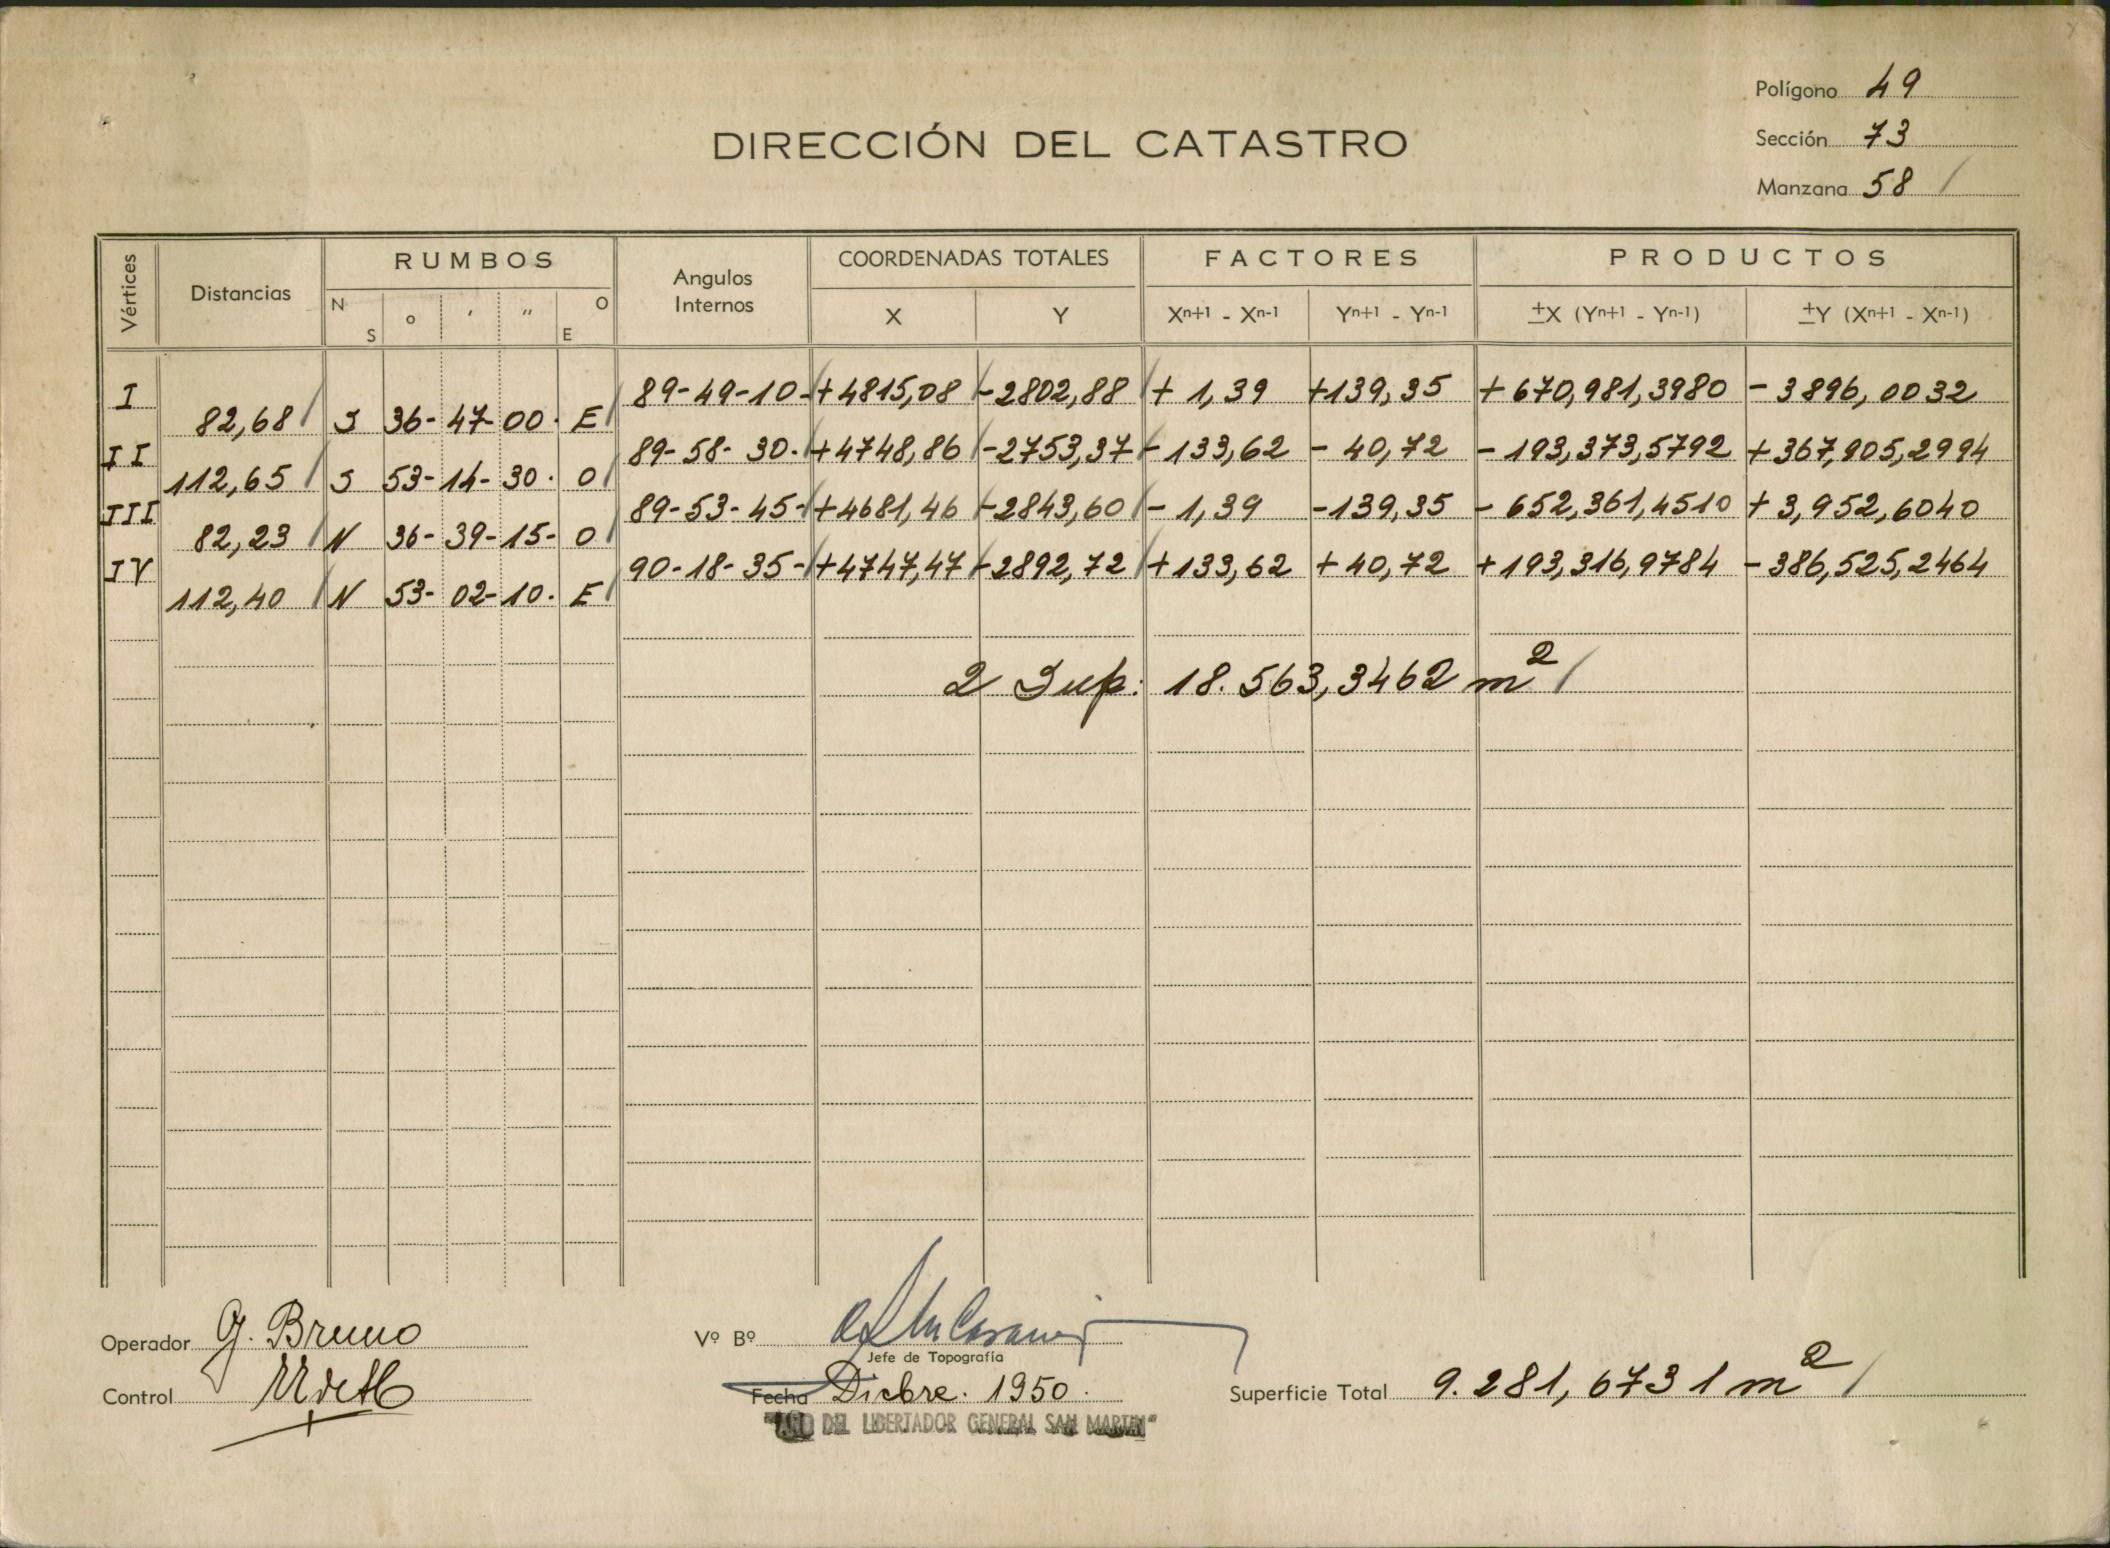 Polígono 49
DIRECCIÓN DEL CATASTRO
Sección 73
Manzana 58 /
Vértices Distancias RUMBOS Angulos Internos COORDENADAS TOTALES FACTORES PRODUCTOS
N S o ' " O E X Y Xn+1 - Xn-1 Yn+1 - Yn-1 ±X (Yn+1 - Yn-1) ±Y (Xn+1 - Xn-1)
I 89-49-10- +4815,08 -2802,88 + 1,39 +139,35 +670,981,3980 -3896,0032
82,68 S 36-47-00. E
II 89-58-30. +4748,86 -2753,37 -133,62 -40,72 -193,373,5792 +367,905,2994
112,65 S 53-14-30. O
III 89-53-45- +4681,46 -2843,60 -1,39 -139,35 -652,361,4510 +3,952,6040
82,23 N 36-39-15- O
IV 90-18-35- +4747,47 -2892,72 +133,62 +40,72 +193,316,9784 -386,525,2464
112,40 N 53-02-10. E
2 Sup: 18.563,3462 m2 /
Operador G. Bruno
Vº Bº
Jefe de Topografía
Control
Fecha Dicbre. 1950.
Superficie Total 9.281,6731 m2 /
"AÑO DEL LIBERTADOR GENERAL SAN MARTIN"